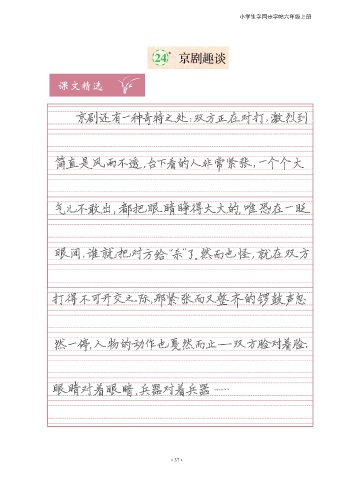 小学生字同步字帖六年级上册
24 京剧趣谈
课文精选
京剧还有一种奇特之处:双方正在对打,激烈到
简直是风雨不透,台下看的人非常紧张,一个个大
气儿不敢出,都把眼睛睁得大大的,唯恐在一眨
眼间,谁就把对方给“杀”了。然而也怪,就在双方
打得不可开交之际,那紧张而又整齐的锣鼓声忽
然一停,人物的动作也戛然而止——双方脸对着脸,
眼睛对着眼睛,兵器对着兵器……
·37·